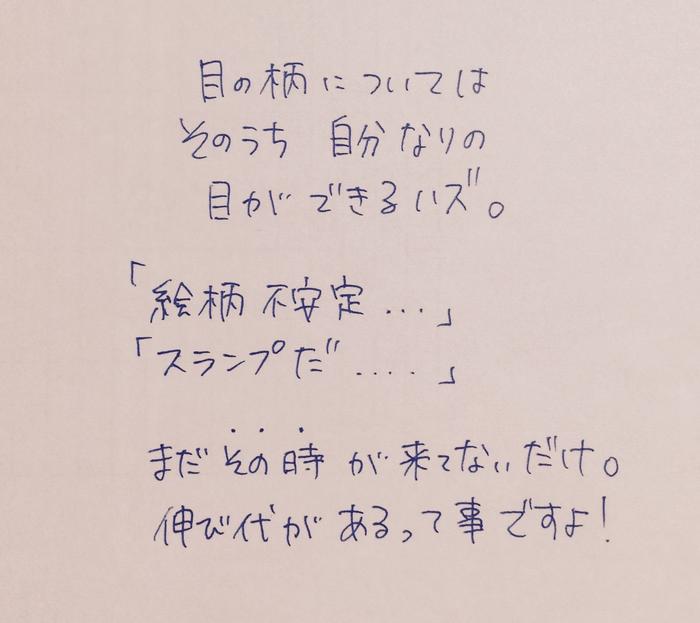 目の柄については
そのうち 自分なりの
目ができるハズ。
「絵柄 不安定...」
「スランプだ....」
まだその時が来てないだけ。
伸び代があるって事ですよ!